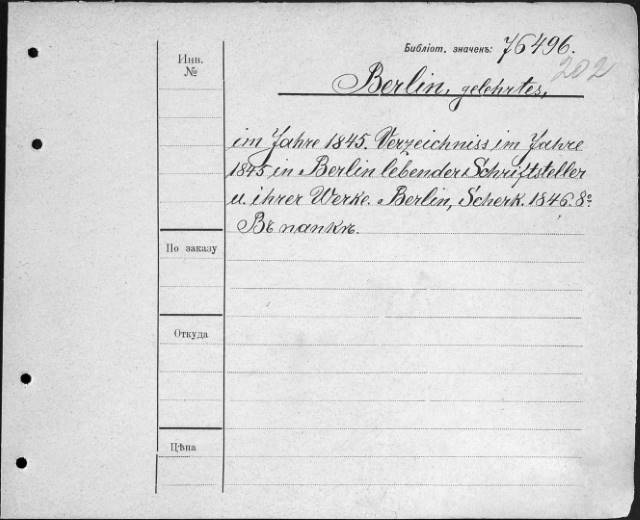 Библіот. значекъ: 76496.
202
Инв.
№
Berlin, gelehrtes,
im Jahre 1845. Verzeichniss im Jahre
1845 in Berlin lebender Schriftsteller
u. ihrer Werke. Berlin, Scherk. 1846. 8º
Въ папкѣ.
По заказу
Откуда
Цѣна